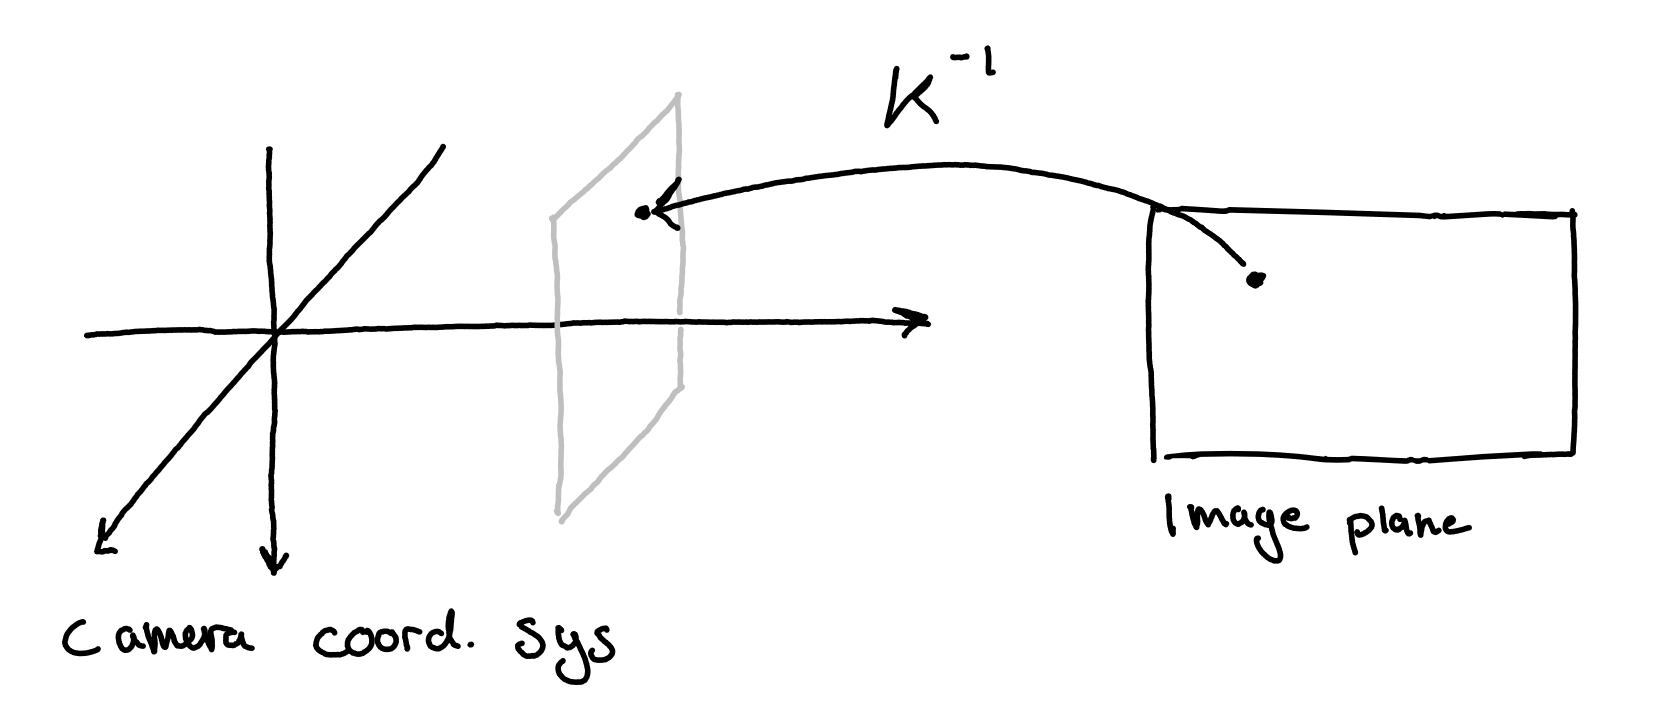 K⁻¹
Image plane
Camera coord. sys